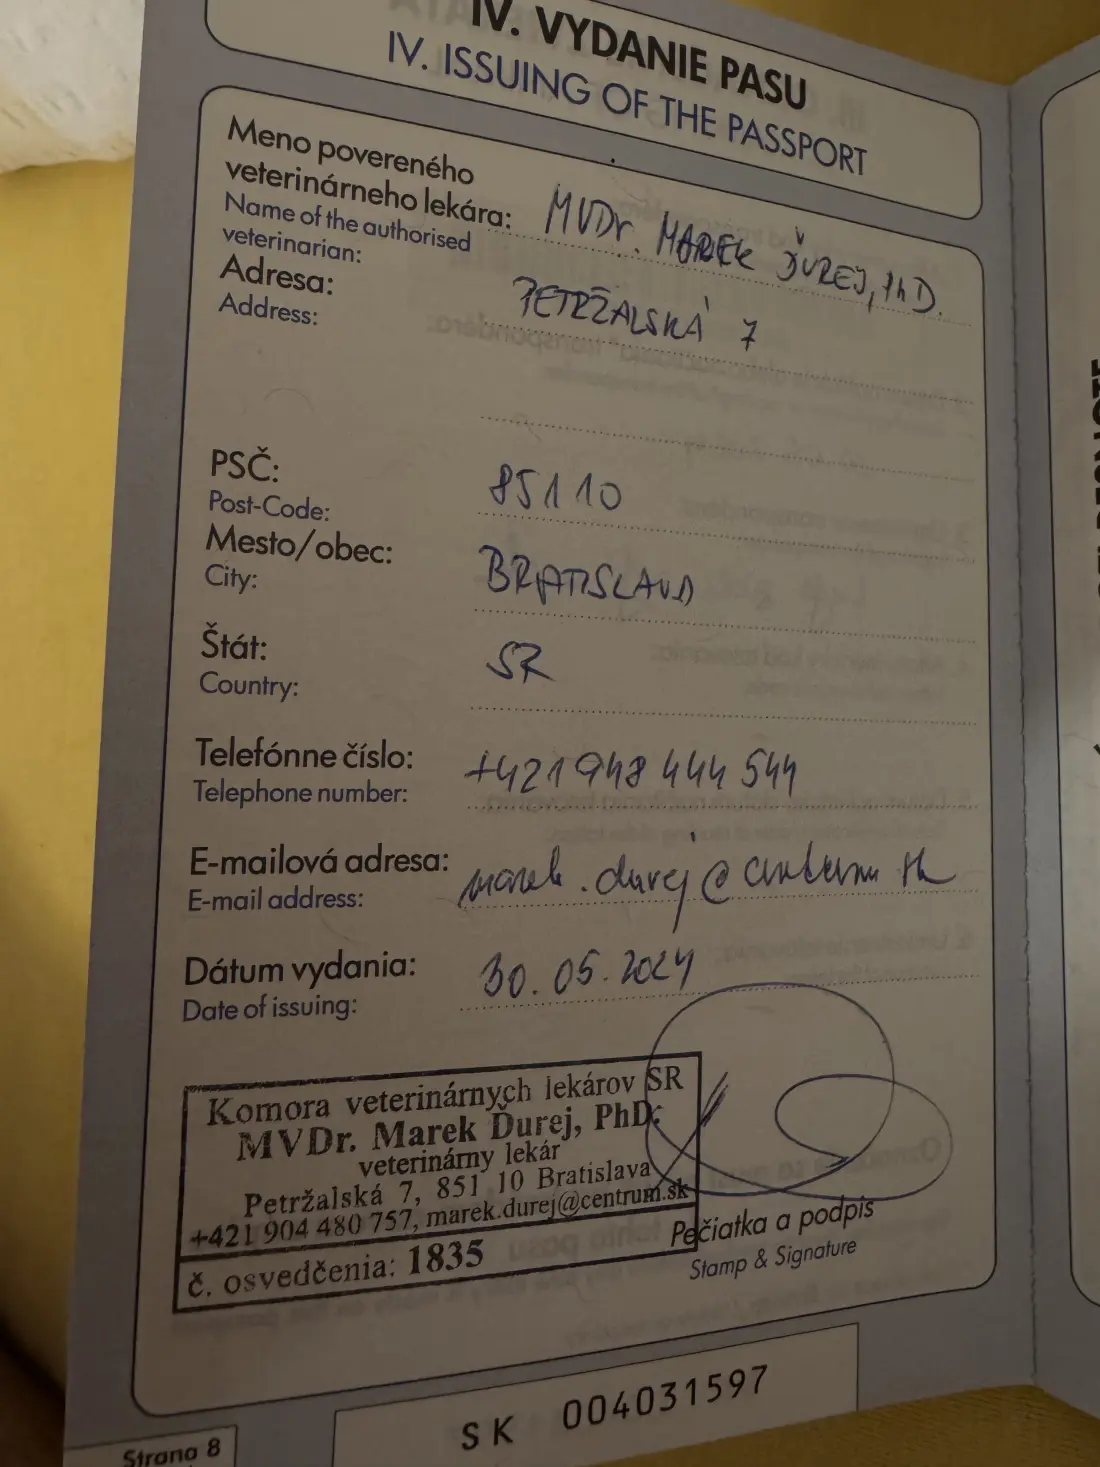 IV. VYDANIE PASU
IV. ISSUING OF THE PASSPORT
Meno povereného
veterinárneho lekára: MVDr. MAREK ĎUREJ, PhD.
Name of the authorised
veterinarian:
Adresa: PETRŽALSKÁ 7
Address:
PSČ: 85110
Post-Code:
Mesto/obec: BRATISLAVA
City:
Štát: SR
Country:
Telefónne číslo: +421 948 444 544
Telephone number:
E-mailová adresa: marek.durej@centrum.sk
E-mail address:
Dátum vydania: 30.05.2024
Date of issuing:
Komora veterinárnych lekárov SR
MVDr. Marek Ďurej, PhD.
veterinárny lekár
Petržalská 7, 851 10 Bratislava
+421 904 480 757, marek.durej@centrum.sk
č. osvedčenia: 1835
Pečiatka a podpis
Stamp & Signature
SK 004031597
Strana 8